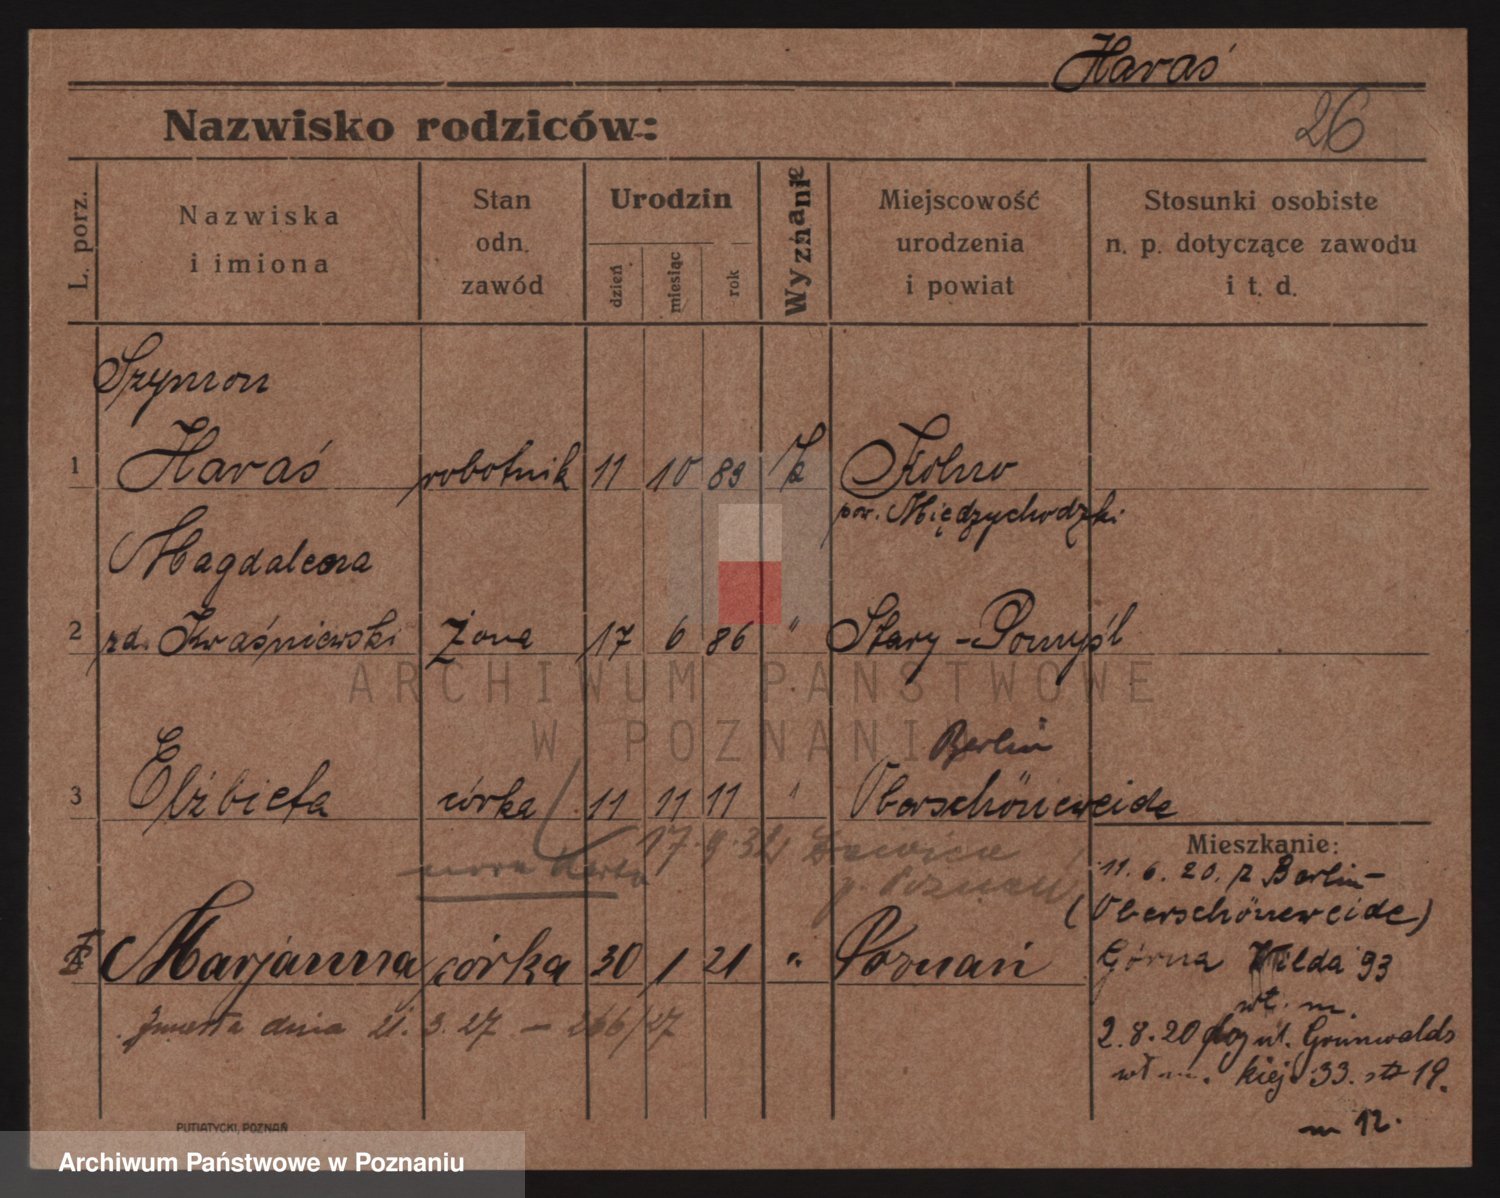 Haraś
26
Nazwisko rodziców:
L. porz.
Nazwiska i imiona
Stan odn. zawód
Urodzin
dzień
miesiąc
rok
Wyznanie
Miejscowość urodzenia i powiat
Stosunki osobiste n. p. dotyczące zawodu i t. d.
Szymon
1 Haraś robotnik 11 10 89 k Kolno
pow. Międzychodzki
Magdalena
2 zd. Kwaśniewski żona 17 6 86 " Stary-Pomyśl
ARCHIWUM PAŃSTWOWE
W POZNANIU
Berlin
3 Elżbieta córka 11 11 11 Oberschöneweide
Mieszkanie:
nowa karta 17.9.32
p. Poznań
11.6.20. z Berlin-
(Oberschöneweide)
Marjanna córka 30 1 21 " Poznań
Górna Wilda 93
wł. m.
zmarła dnia 21.3.27 - 266/27
2.8.20 ul. Grunwaldz
wł m. kiej 33. 19.
m 12.
PUTIATYCKI, POZNAŃ
Archiwum Państwowe w Poznaniu